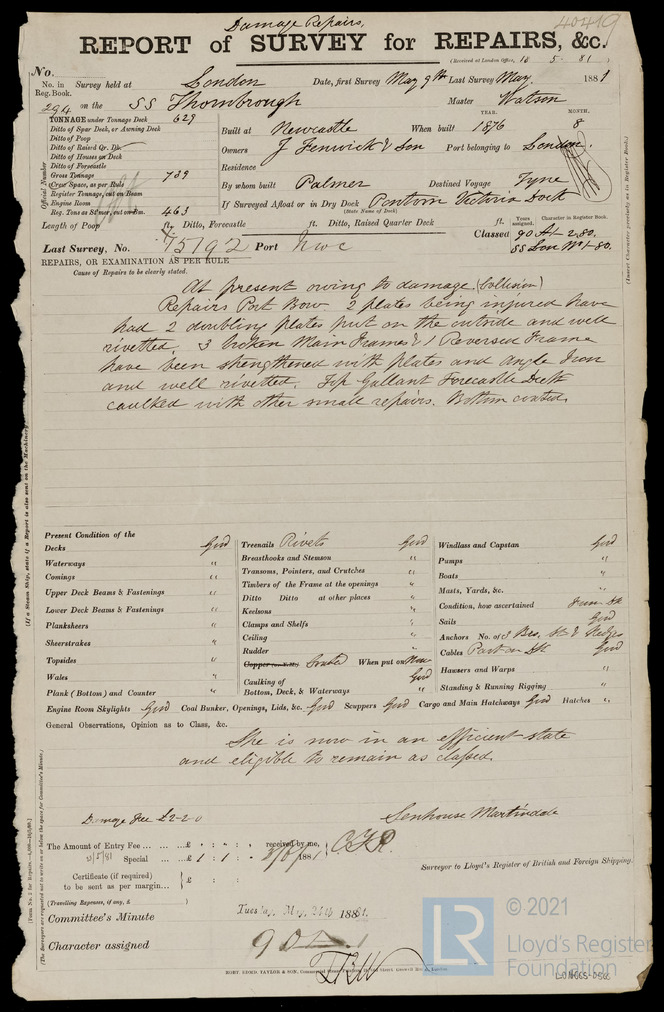 Damage Repairs,
40419
REPORT of SURVEY for REPAIRS, &c.
(Received at London Office, 18 5 81)
No.
No. in Reg. Book. Survey held at London Date, first Survey May 9th Last Survey May, 1881
294 on the SS Thornbrough Master Watson
TONNAGE under Tonnage Deck 629
YEAR. MONTH.
Ditto of Spar Deck, or Awning Deck
Built at Newcastle When built 1876 8
Ditto of Poop
Ditto of Raised Qr. Dk.
Owners J Fenwick & Son Port belonging to London.
Ditto of Houses on Deck
Ditto of Forecastle
Residence
Gross Tonnage 739
(Crew Space, as per Rule
By whom built Palmer Destined Voyage Tyne
Register Tonnage, cut on Beam
Engine Room
If Surveyed Afloat or in Dry Dock Pontoon Victoria Dock
(State Name of Dock)
Reg. Tons as Stmer, cut on Bm. 463
Length of Poop ft. Ditto, Forecastle ft. Ditto, Raised Quarter Deck ft.
Years assigned. Character in Register Book.
Classed 90 A1 2.80.
SS Lon No 1-80.
Last Survey, No. 75192 Port Nwc
REPAIRS, OR EXAMINATION AS PER RULE
Cause of Repairs to be clearly stated.
At present owing to damage. (Collision)
Repairs Port Bow 2 plates being injured have
had 2 doubling plates put on the outside and well
rivetted. 3 broken Main Frames & 1 Reversed Frame
have been strengthened with plates and Angle Iron
and well rivetted. Top Gallant Forecastle Deck
caulked with other small repairs. Bottom coated.
Present Condition of the
Decks Good
Waterways "
Comings "
Upper Deck Beams & Fastenings "
Lower Deck Beams & Fastenings "
Planksheers "
Sheerstrakes "
Topsides "
Wales "
Plank (Bottom) and Counter "
Treenails Rivets Good
Breasthooks and Stemson "
Transoms, Pointers, and Crutches "
Timbers of the Frame at the openings "
Ditto Ditto at other places "
Keelsons "
Clamps and Shelfs "
Ceiling "
Rudder "
Copper Coated When put on Now
Caulking of Good
Bottom, Deck, & Waterways "
Windlass and Capstan Good
Pumps "
Boats "
Masts, Yards, &c. "
Condition, how ascertained From Dk
Sails Good
Anchors No. of 3 Bro, St & Kedges
Cables Part on Dk Good
Hawsers and Warps "
Standing & Running Rigging "
Engine Room Skylights Good Coal Bunker, Openings, Lids, &c. Good Scuppers Good Cargo and Main Hatchways Good Hatches "
General Observations, Opinion as to Class, &c.
She is now in an efficient state
and eligible to remain as classed.
Damage Fee £2-2-0
Senhouse Martindale
The Amount of Entry Fee £ : : : received by me,
Special £ 1 : 1 : 1881
Surveyor to Lloyd's Register of British and Foreign Shipping.
Certificate (if required) to be sent as per margin £ :
(Travelling Expenses, if any, £ )
Committee's Minute Tuesday, May 24th 1881.
Character assigned 90
(If a Steam Ship, state if a Report is also sent on the Machinery.)
(The Surveyors are requested not to write on or below the space for Committee's Minute.)
(Insert Character precisely as in Register Book.)
© 2021
LR
Lloyd's Register
Foundation